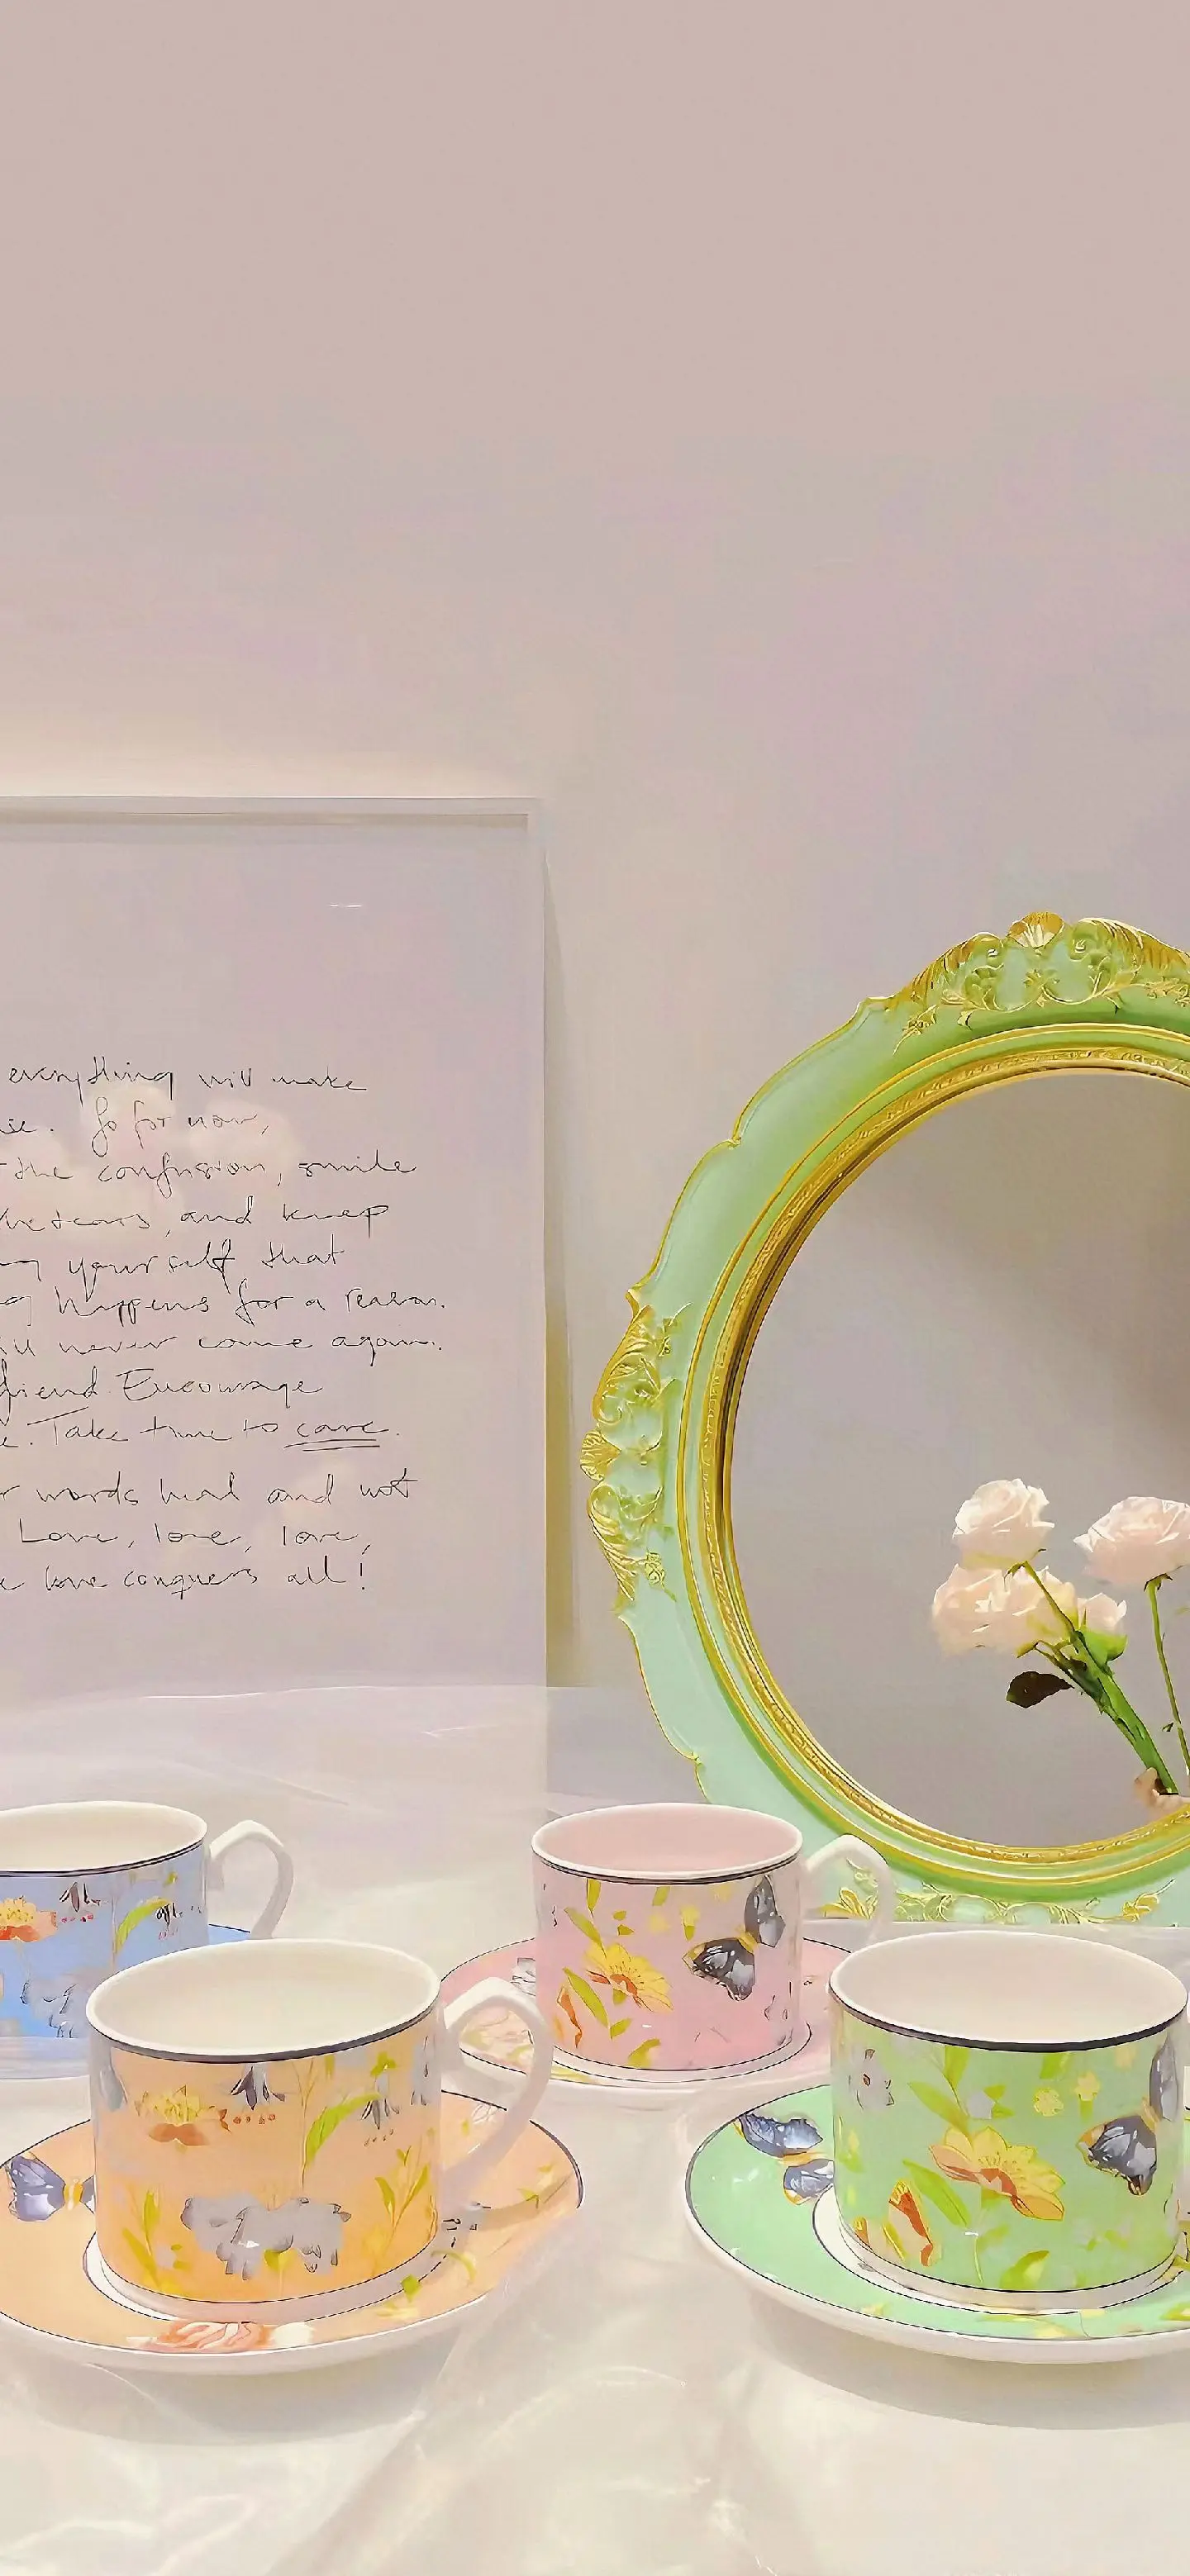 everything will make
. So for now,
the confusion, smile
tears, and keep
yourself that
happens for a reason.
never come again.
friend. Encourage
Take time to care.
words heal and not
Love, love, love,
love conquers all!